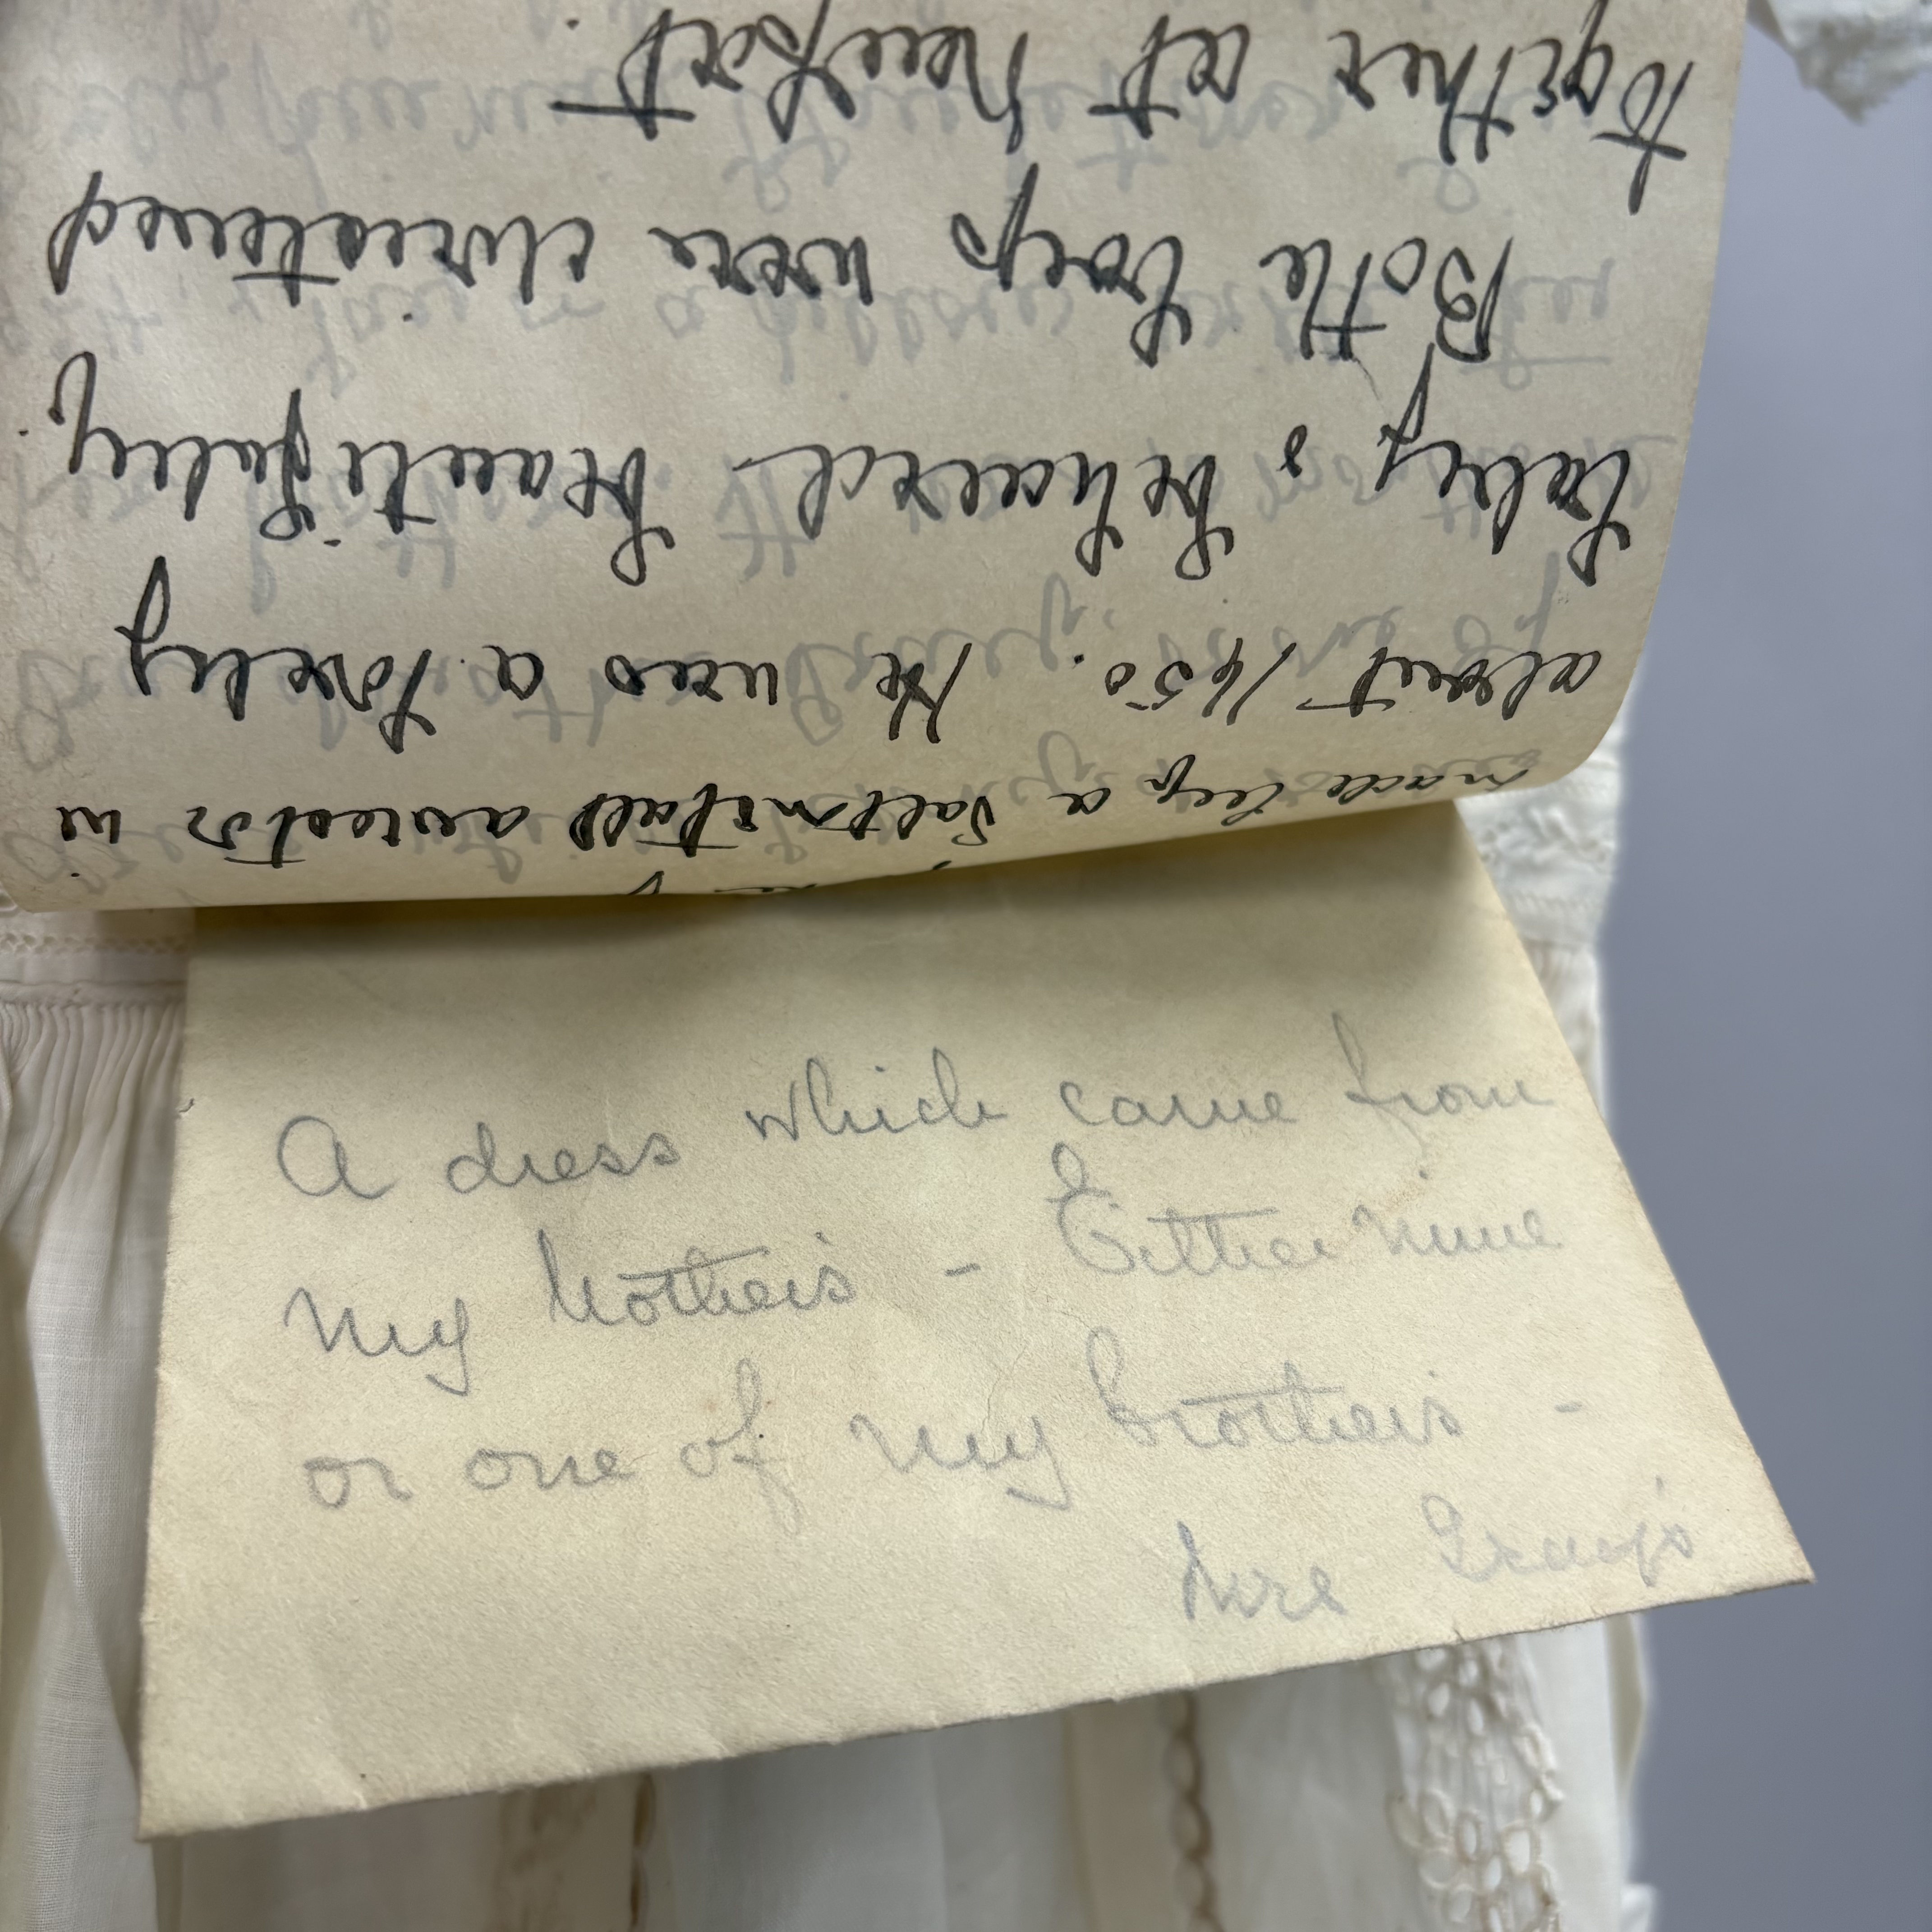 made by a Saltonstall ancestor in
about 1650. He was a lovely
baby, & behaved beautifully
Both boys were christened
together at Newport.
A dress which came from
my Mother's - Either mine
or one of my brothers -